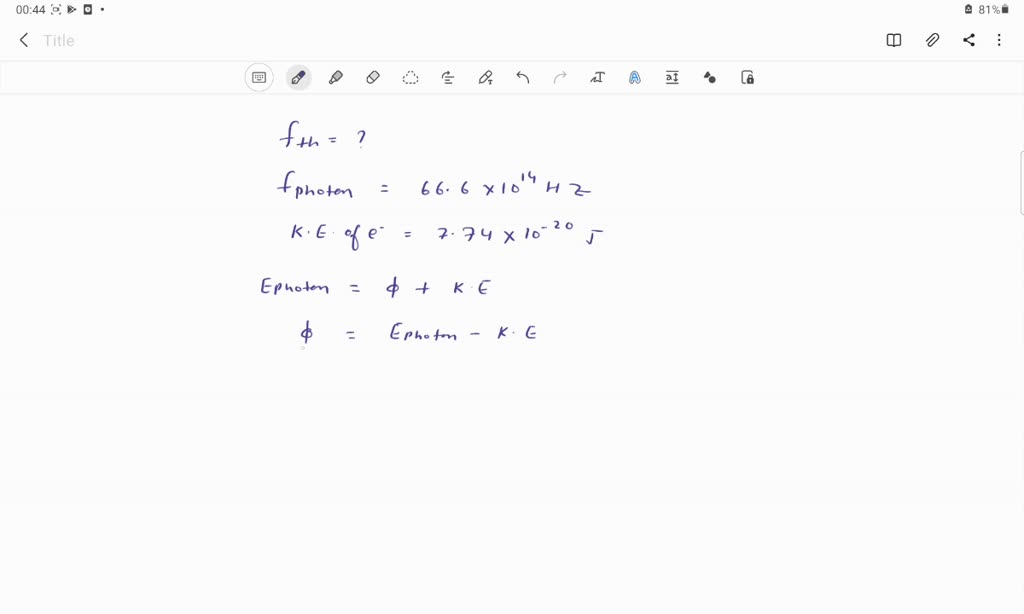 00:44
81%
Title
f_th = ?
f_photon = 66.6 × 10^14 Hz
K.E. of e^- = 7.74 × 10^-20 J
E_photon = ϕ + K.E
ϕ = E_photon - K.E